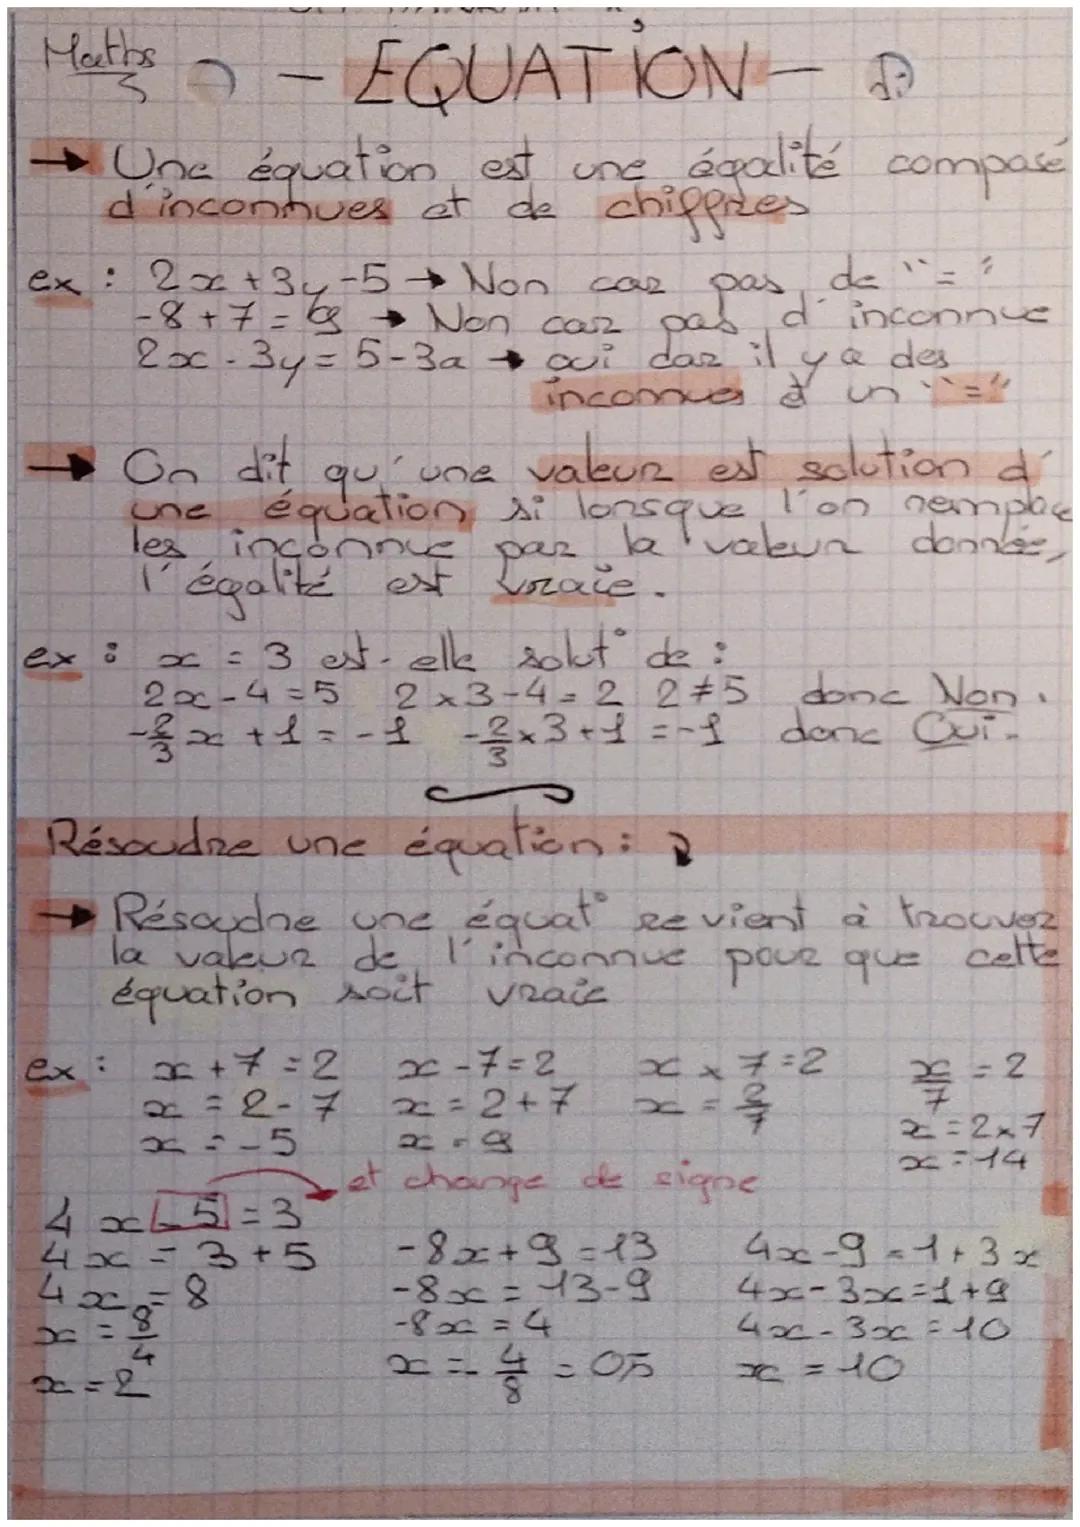 Maths
- EQUATION -
→ Une équation est une égalité composé
d'inconnues et de chiffres
ex : 2x + 3y - 5 → Non car pas de "="
-8 + 7 = → Non car pas d'inconnue
2x - 3y = 5 - 3a → oui car il y a des
inconnues et un "="
→ On dit qu'une valeur est solution d'
une équation si lorsque l'on remplace
les inconnue par la valeur donnée,
l'égalité est vraie.
ex : x = 3 est-elle solut° de :
2x - 4 = 5 2 x 3 - 4 = 2 2 ≠ 5 donc Non.
-2/3 x + 1 = -1 -2/3 x 3 + 1 = -1 donc Oui.
Résoudre une équation :
→ Résoudre une équat° revient à trouver
la valeur de l'inconnue pour que cette
équation soit vraie
ex : x + 7 = 2 x - 7 = 2 x x 7 = 2 x/7 = 2
x = 2 - 7 x = 2 + 7 x = 2/7 x = 2 x 7
x = -5 x = 9 x = 14
et change de signe
4x - 5 = 3
4x = 3 + 5 -8x + 9 = 13 4x - 9 = 1 + 3x
4x = 8 -8x = 13 - 9 4x - 3x = 1 + 9
x = 8/4 -8x = 4 4x - 3x = 10
x = 2 x = -4/8 = 05 x = 10